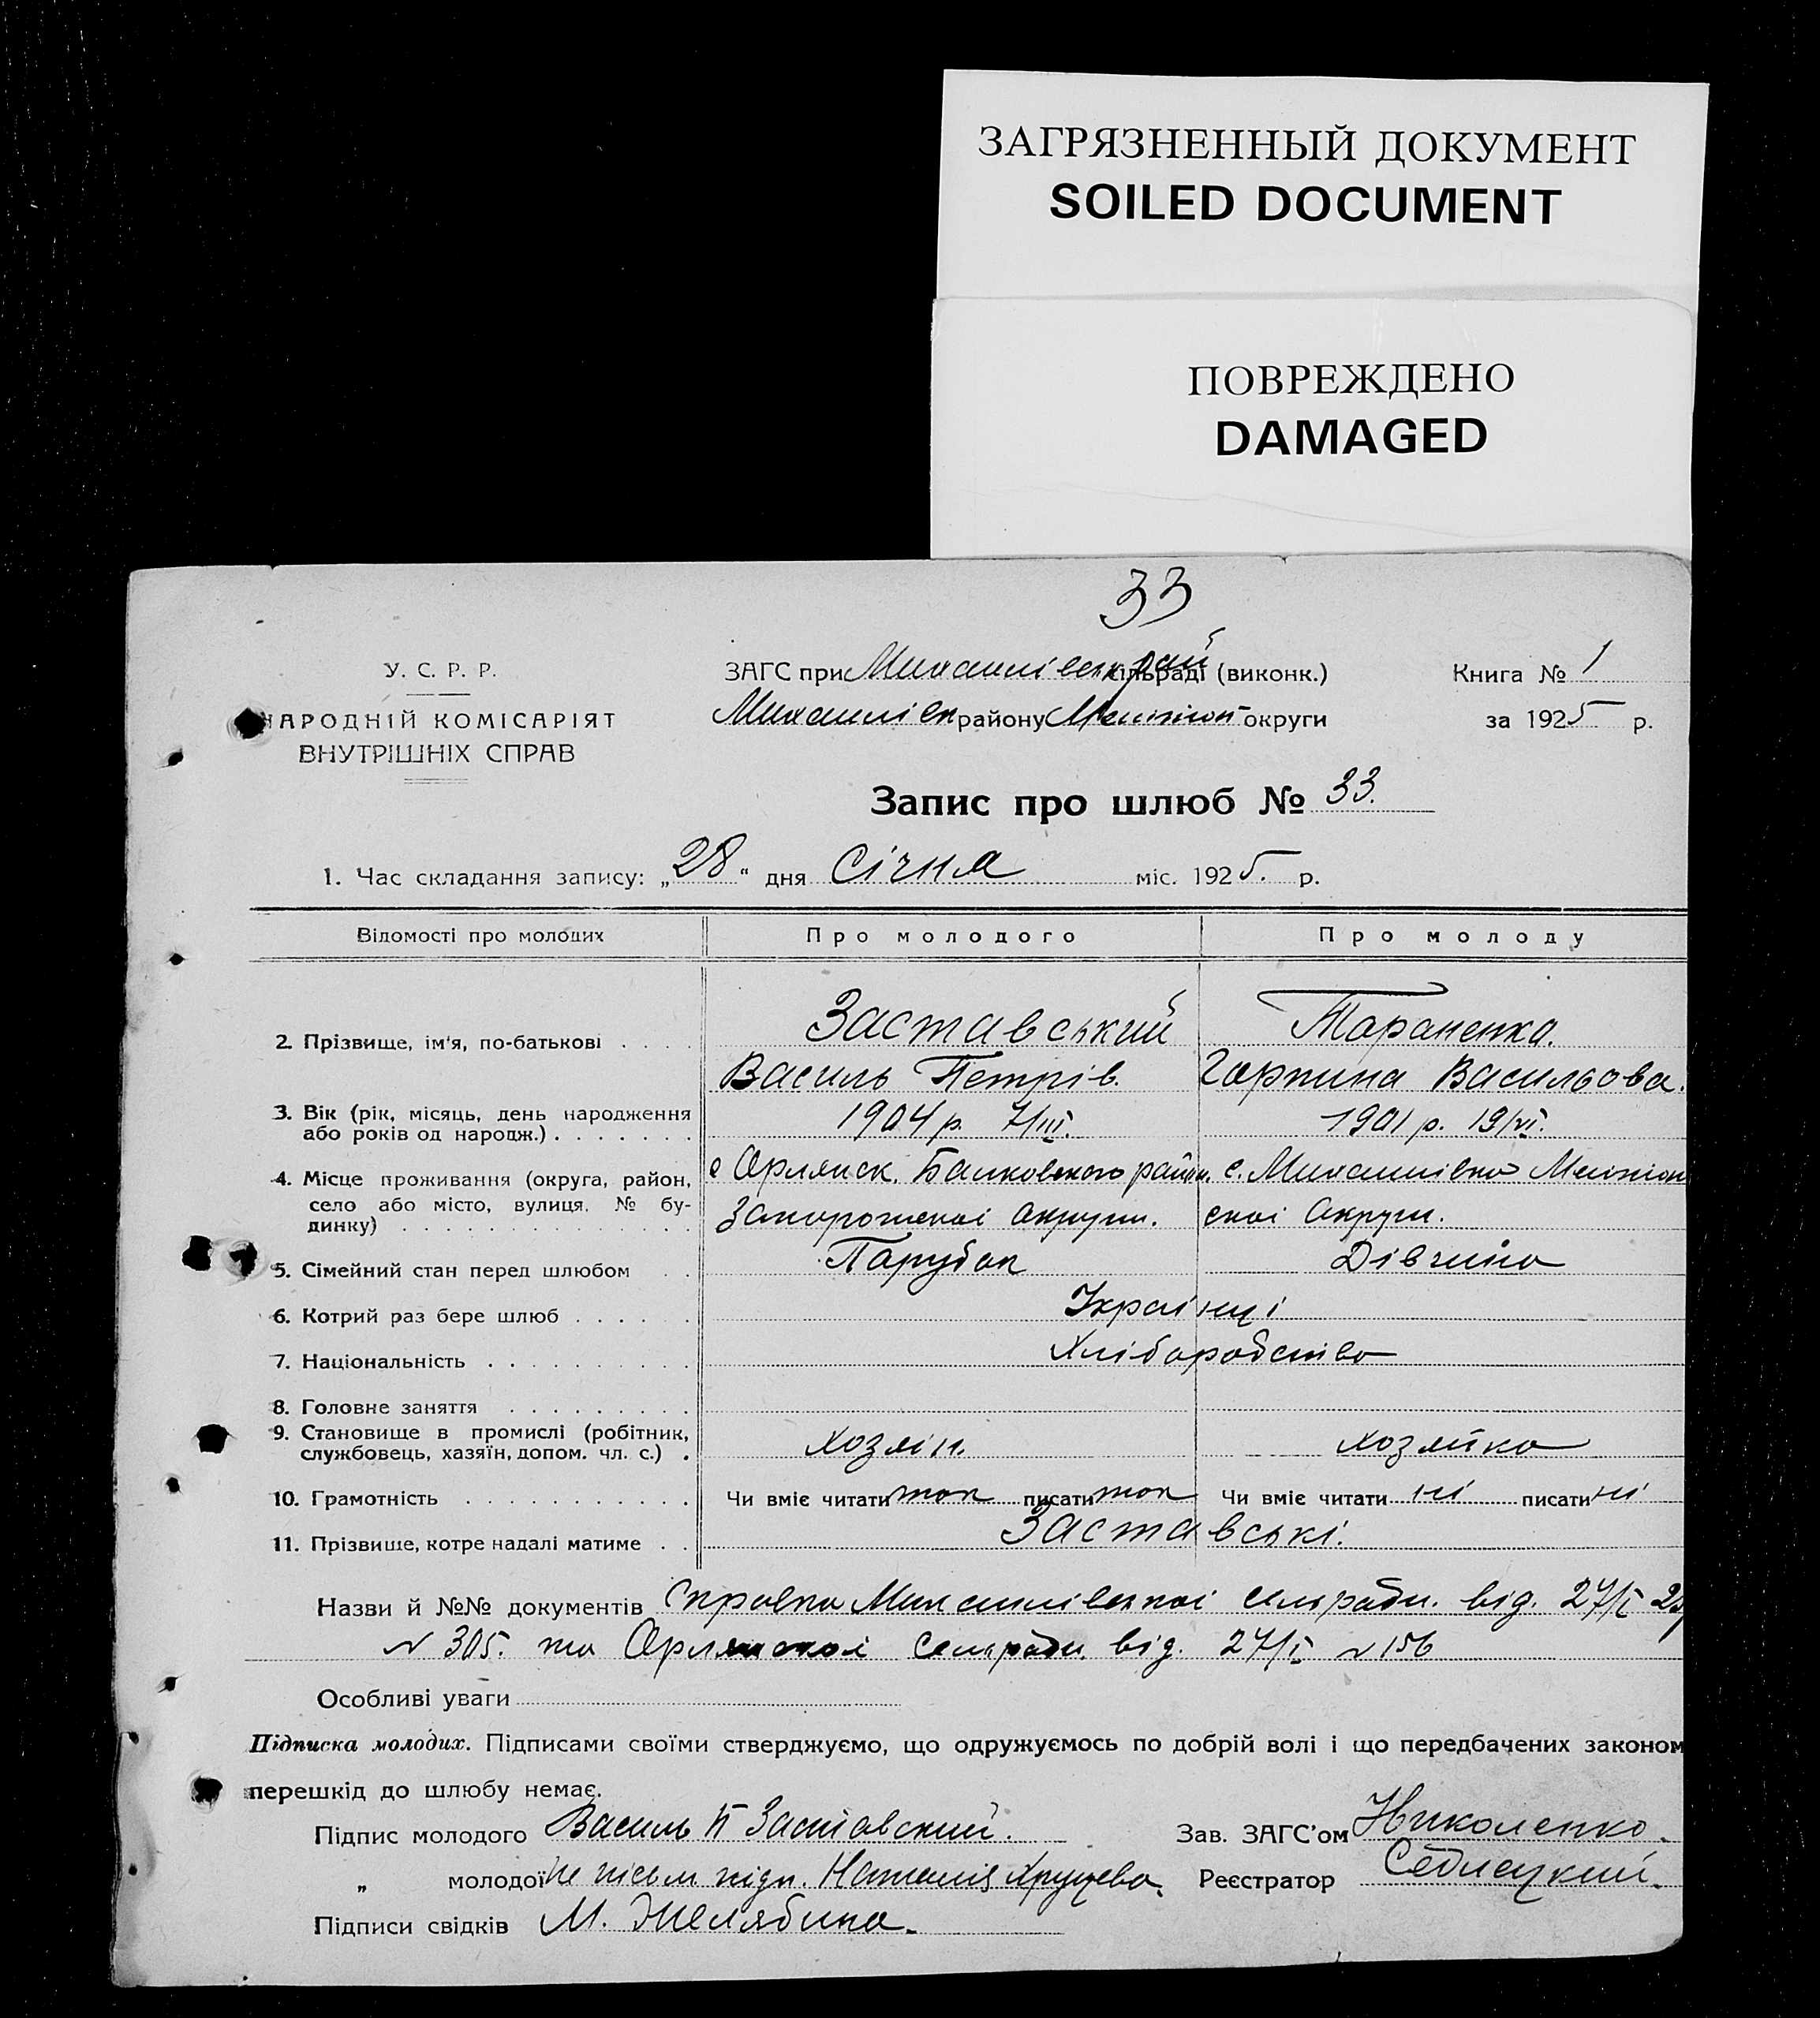 ЗАГРЯЗНЕННЫЙ ДОКУМЕНТ
SOILED DOCUMENT
ПОВРЕЖДЕНО
DAMAGED
33
У. С. Р. Р.
НАРОДНІЙ КОМІСАРІЯТ
ВНУТРІШНІХ СПРАВ
ЗАГС при сільраді (виконк.)
району округи
Книга № 1
за 1925 р.
Запис про шлюб № 33.
1. Час складання запису: „28“ дня Січня міс. 1925. р.
Відомості про молодих Про молодого Про молоду
2. Прізвище, ім'я, по-батькові . . . . Заставський Тараненка.
Василь Петрів. Гарпина Васильова.
3. Вік (рік, місяць, день народження
або років од народж.) . . . . . . . 1904 р. 7/III. 1901 р. 19/VI.
4. Місце проживання (округа, район,
село або місто, вулиця, № бу-
динку) . . . . . . . . . . .
с Орлянск. района, с. Михайлівка
округи. скої Округи.
5. Сімейний стан перед шлюбом . . Парубок Дівчина
6. Котрий раз бере шлюб . . . . . . Українці
7. Національність . . . . . . . . . . Хліборобство
8. Головне заняття . . . . . . . . .
9. Становище в промислі (робітник,
службовець, хазяїн, допом. чл. с.) . Хозяін. Хозяйка
10. Грамотність . . . . . . . . . . . Чи вміє читати так писати так Чи вміє читати ні писати ні
11. Прізвище, котре надалі матиме . . Заставські.
Назви й №№ документів Справка Михайлівської сельради. від. 27/I
№ 305. та Орлянской сельради. від. 27/I № 156
Особливі уваги
Підписка молодих. Підписами своїми стверджуємо, що одружуємось по добрій волі і що передбачених законом
перешкід до шлюбу немає.
Підпис молодого Василь П Заставский. Зав. ЗАГС'ом Николенко.
„ молодої не пісьм підп. Наталія Реєстратор Седлецкий.
Підписи свідків М. Желябина.